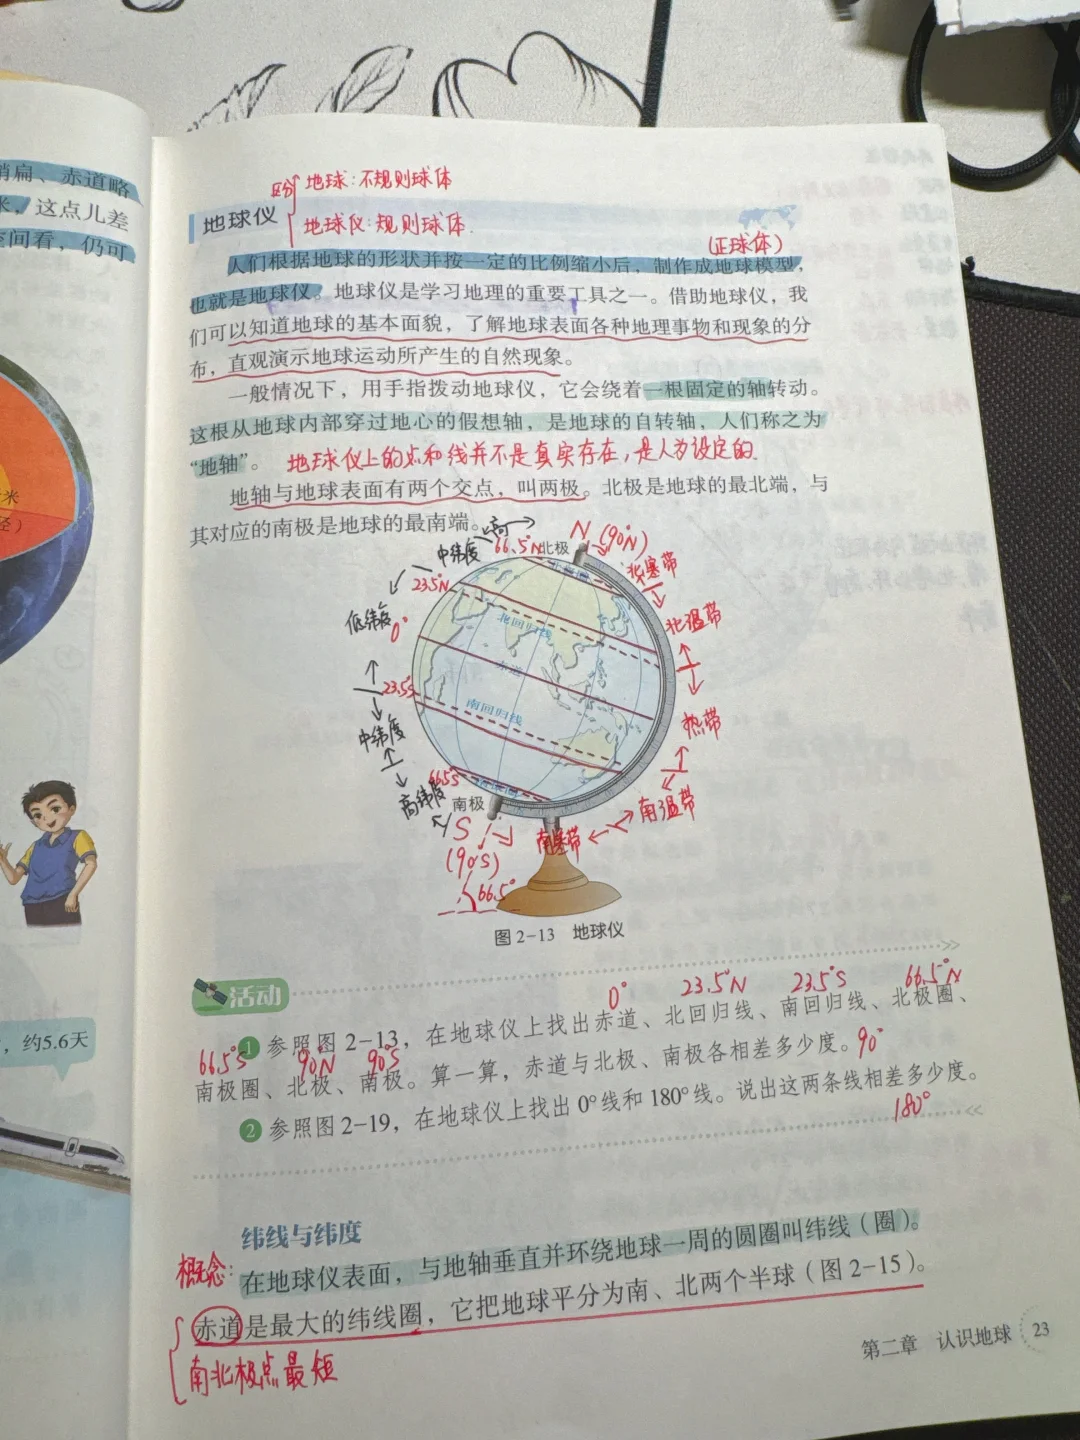 稍扁、赤道略
米，这点儿差
空间看，仍可
米
径）
，约5.6天
区分
地球：不规则球体
地球仪
地球仪：规则球体.
（正球体）
人们根据地球的形状并按一定的比例缩小后，制作成地球模型，
也就是地球仪。地球仪是学习地理的重要工具之一。借助地球仪，我
们可以知道地球的基本面貌，了解地球表面各种地理事物和现象的分
布，直观演示地球运动所产生的自然现象。
一般情况下，用手指拨动地球仪，它会绕着一根固定的轴转动。
这根从地球内部穿过地心的假想轴，是地球的自转轴，人们称之为
“地轴”。 地球仪上的点和线并不是真实存在，是人为设定的.
地轴与地球表面有两个交点，叫两极。北极是地球的最北端，与
其对应的南极是地球的最南端。
高
N (90°N)
中纬度
66.5°N
北极
北极圈
北寒带
23.5°N
低纬度
0°
北回归线
北温带
赤道
23.5°S
南回归线
热带
中纬度
66.5°S
高纬度
南极
南温带
S
南寒带
(90°S)
66.5°
图 2-13 地球仪
活动
0° 23.5°N 23.5°S 66.5°N
1 参照图 2-13，在地球仪上找出赤道、北回归线、南回归线、北极圈、
66.5°S 90°N 90°S
南极圈、北极、南极。算一算，赤道与北极、南极各相差多少度。90°
2 参照图 2-19，在地球仪上找出 0°线和 180°线。说出这两条线相差多少度。
180°
纬线与纬度
概念：
在地球仪表面，与地轴垂直并环绕地球一周的圆圈叫纬线（圈）。
赤道是最大的纬线圈，它把地球平分为南、北两个半球（图 2-15）。
南北极点最短
第二章 认识地球 23